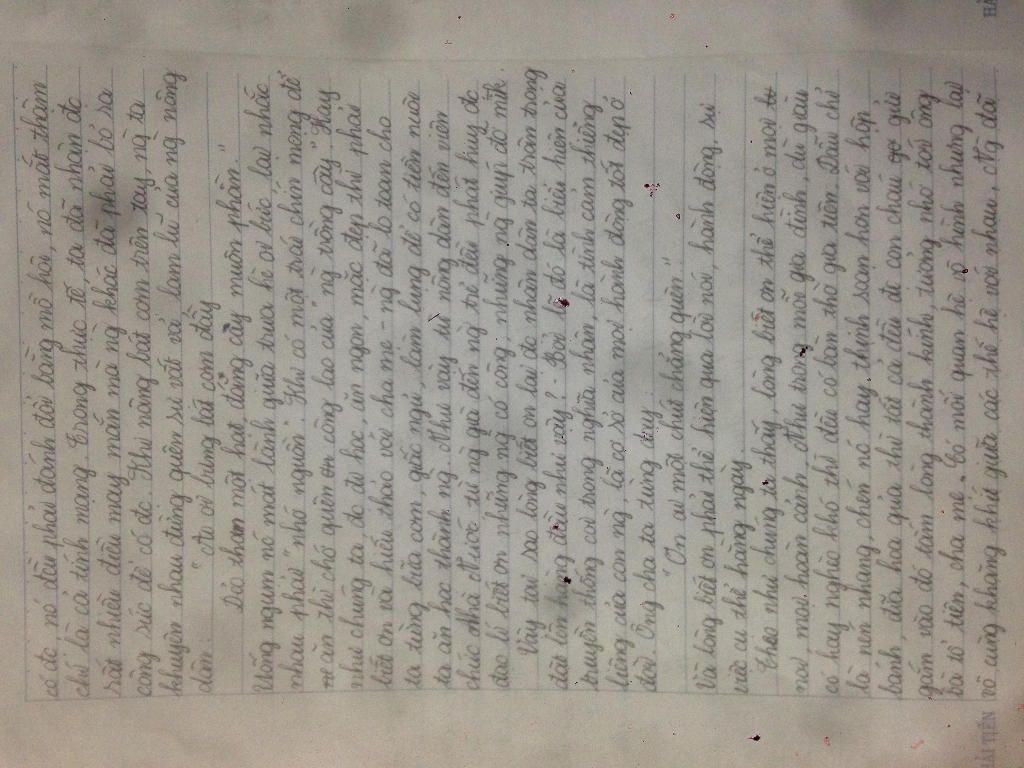 có đc, nó đều phải đánh đổi bằng mồ hôi, nó mắt thậm
chí là cả tính mạng. Trong thực tế ta đã nhận đc
rất nhiều điều may mắn mà ng khác đã phải bỏ ra
công sức để có đc. Khi nâng bát cơm trên tay, ng ta
khuyên nhau đừng quên sự vất vả lam lũ của ng nông
dân
"Ai ơi bưng bát cơm đầy
Dẻo thơm một hạt đắng cay muôn phần."
Uống ngụm nó mát lành quả trưa hè oi bức lại nhắc
nhau phải "nhớ nguồn". Khi có một trái chín mọng để
ăn thì chớ quên công lao của "ng trồng cây". Hay
như chúng ta, đc đi học, ăn ngon, mặc đẹp thì phải
biết ơn và hiếu thảo với cha mẹ - ng đã lo toan cho
ta từng bữa cơm, giấc ngủ, làm lụng để có tiền nuôi
ta ăn học thành ng. Như vậy từ nông dân đến viên
chức Nhà Nước, từ ng già đến ng trẻ đều phát huy đc
đạo lí biết ơn những ng có công, những ng giúp đỡ mìh
Vậy tại sao lòng biết ơn lại đc nhân dân ta trân trọng
đặt lên hàng đầu như vậy? - Bởi lẽ đó là biểu hiện của
truyền thống coi trọng nghĩa nhân, là tình cảm thiêng
liêng của con ng, là cơ sở của mọi hành động tốt đẹp ở
đời. Ông cha ta từng dạy:
"Ơn ai một chút chẳng quên".
Và lòng biết ơn phải thể hiện qua lời nói, hành động, sự
việc cụ thể hằng ngày.
Theo như chúng ta thấy, lòng biết ơn thể hiện ở mọi
nơi, mọi hoàn cảnh. Như trong mỗi gia đình, dù giàu
có hay nghèo khó thì đều có bàn thờ gia tiên. Dẫu chỉ
là nén nhang, chén nó hay thịnh soạn hơn với hộp
bánh, đĩa hoa quả thì tất cả đều để con cháu gửi
gắm vào đó tấm lòng thành kính, tưởng nhớ tới ông
bà tổ tiên, cha mẹ. Có mối quan hệ vô hình nhưng lại
vô cùng khăng khít giữa các thế hệ với nhau. Ng đã
HẢI TIẾN